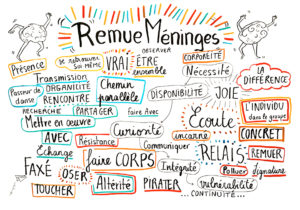 Remue Méninges
OBSERVER
Présence
se retrouver
soi même
VRAI
ÊTRE
ensemble
CORPORÉITÉ
Nécessité
LA
DIFFÉRENCE
Transmission
Passeur de
danse
ORGANICITÉ
RENCONTRE
Chemin
parallèle
DISPONIBILITÉ
JOIE
RECHERCHE
PARTAGER
Faire Avec
L'INDIVIDU
dans le groupe
Mettre en œuvre
Curiosité
Écoute
incarnée
CONCRET
AVEC
Résistance
Communiquer
RELAIS
REMUER
Échange
FAXÉ
OSER
faire CORPS
Intégrité
Polluer
signature
TOUCHER
Altérité
PIRATER
vulnérabilité
CONTINUITÉ...